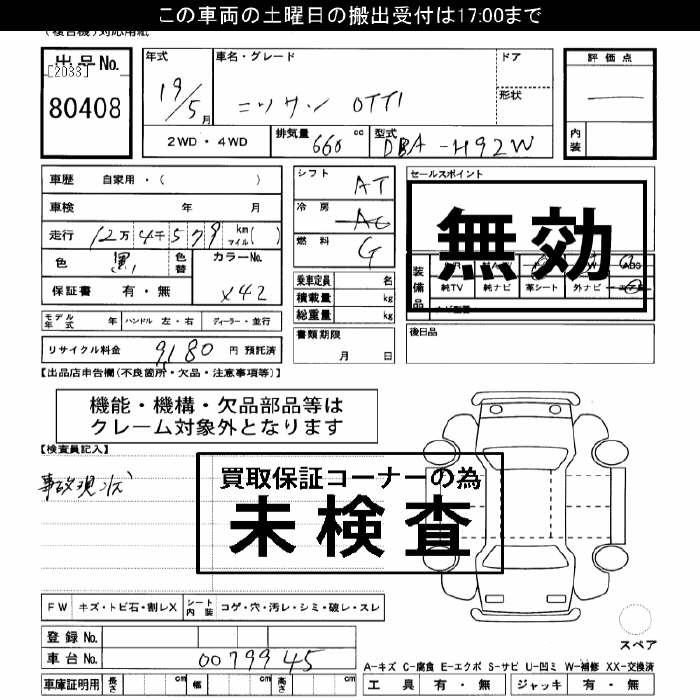 この車両の土曜日の搬出受付は17:00まで
出品No.
[2033]
80408
年式
19/5月
車名・グレード
ニッサン OTTI
ドア
形状
評価点
内装
2WD・4WD
排気量 660 cc
型式 DBA-H92W
車歴 自家用・( )
車検 年 月
走行 12万4千579 km マイル( )
色 黒 色替 カラーNo. X42
保証書 有・無
モデル年式 年 ハンドル 左・右 ディーラー・並行
リサイクル料金 9180 円 預託済
シフト AT
冷房 AC
燃料 G
乗車定員 名
積載量 kg
総重量 kg
書類期限
月 日
セールスポイント
無効
装備品
ABS
純TV 純ナビ 革シート 外ナビ
後日品
【出品店申告欄(不良箇所・欠品・注意事項等)】
機能・機構・欠品部品等は
クレーム対象外となります
【検査員記入】
事故現状
買取保証コーナーの為
未検査
FW キズ・トビ石・割レX シート内装 コゲ・穴・汚レ・シミ・破レ・スレ
登録No.
車台No. 0079945
車庫証明用 長さ cm 幅 cm 高さ cm
スペア
A-キズ C-腐食 E-エクボ S-サビ U-凹ミ W-補修 XX-交換済
工具 有・無 ジャッキ 有・無